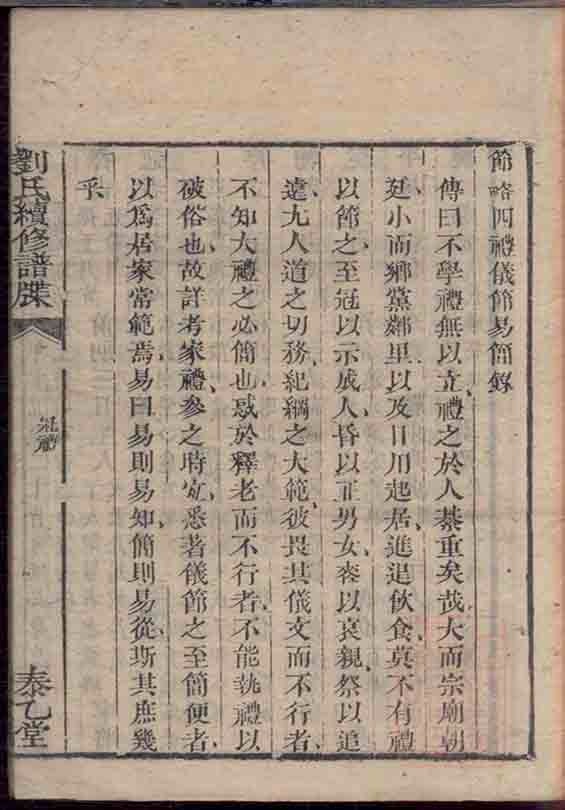 節略四禮儀節易簡錄
傳曰不學禮無以立禮之於人綦重矣哉大而宗廟朝
廷小而鄉黨鄰里以及日用起居進退飲食莫不有禮
以節之至冠以示成人昏以正男女喪以哀親祭以追
遠尤人道之切務紀綱之大範彼畏其儀文而不行者
不知大禮之必簡也惑於釋老而不行者不能執禮以
破俗也故詳考家禮參之時宜悉著儀節之至簡便者
以爲居家常範焉易曰易則易知簡則易從斯其庶幾
乎
劉氏續修譜牒
冠禮
泰乙堂